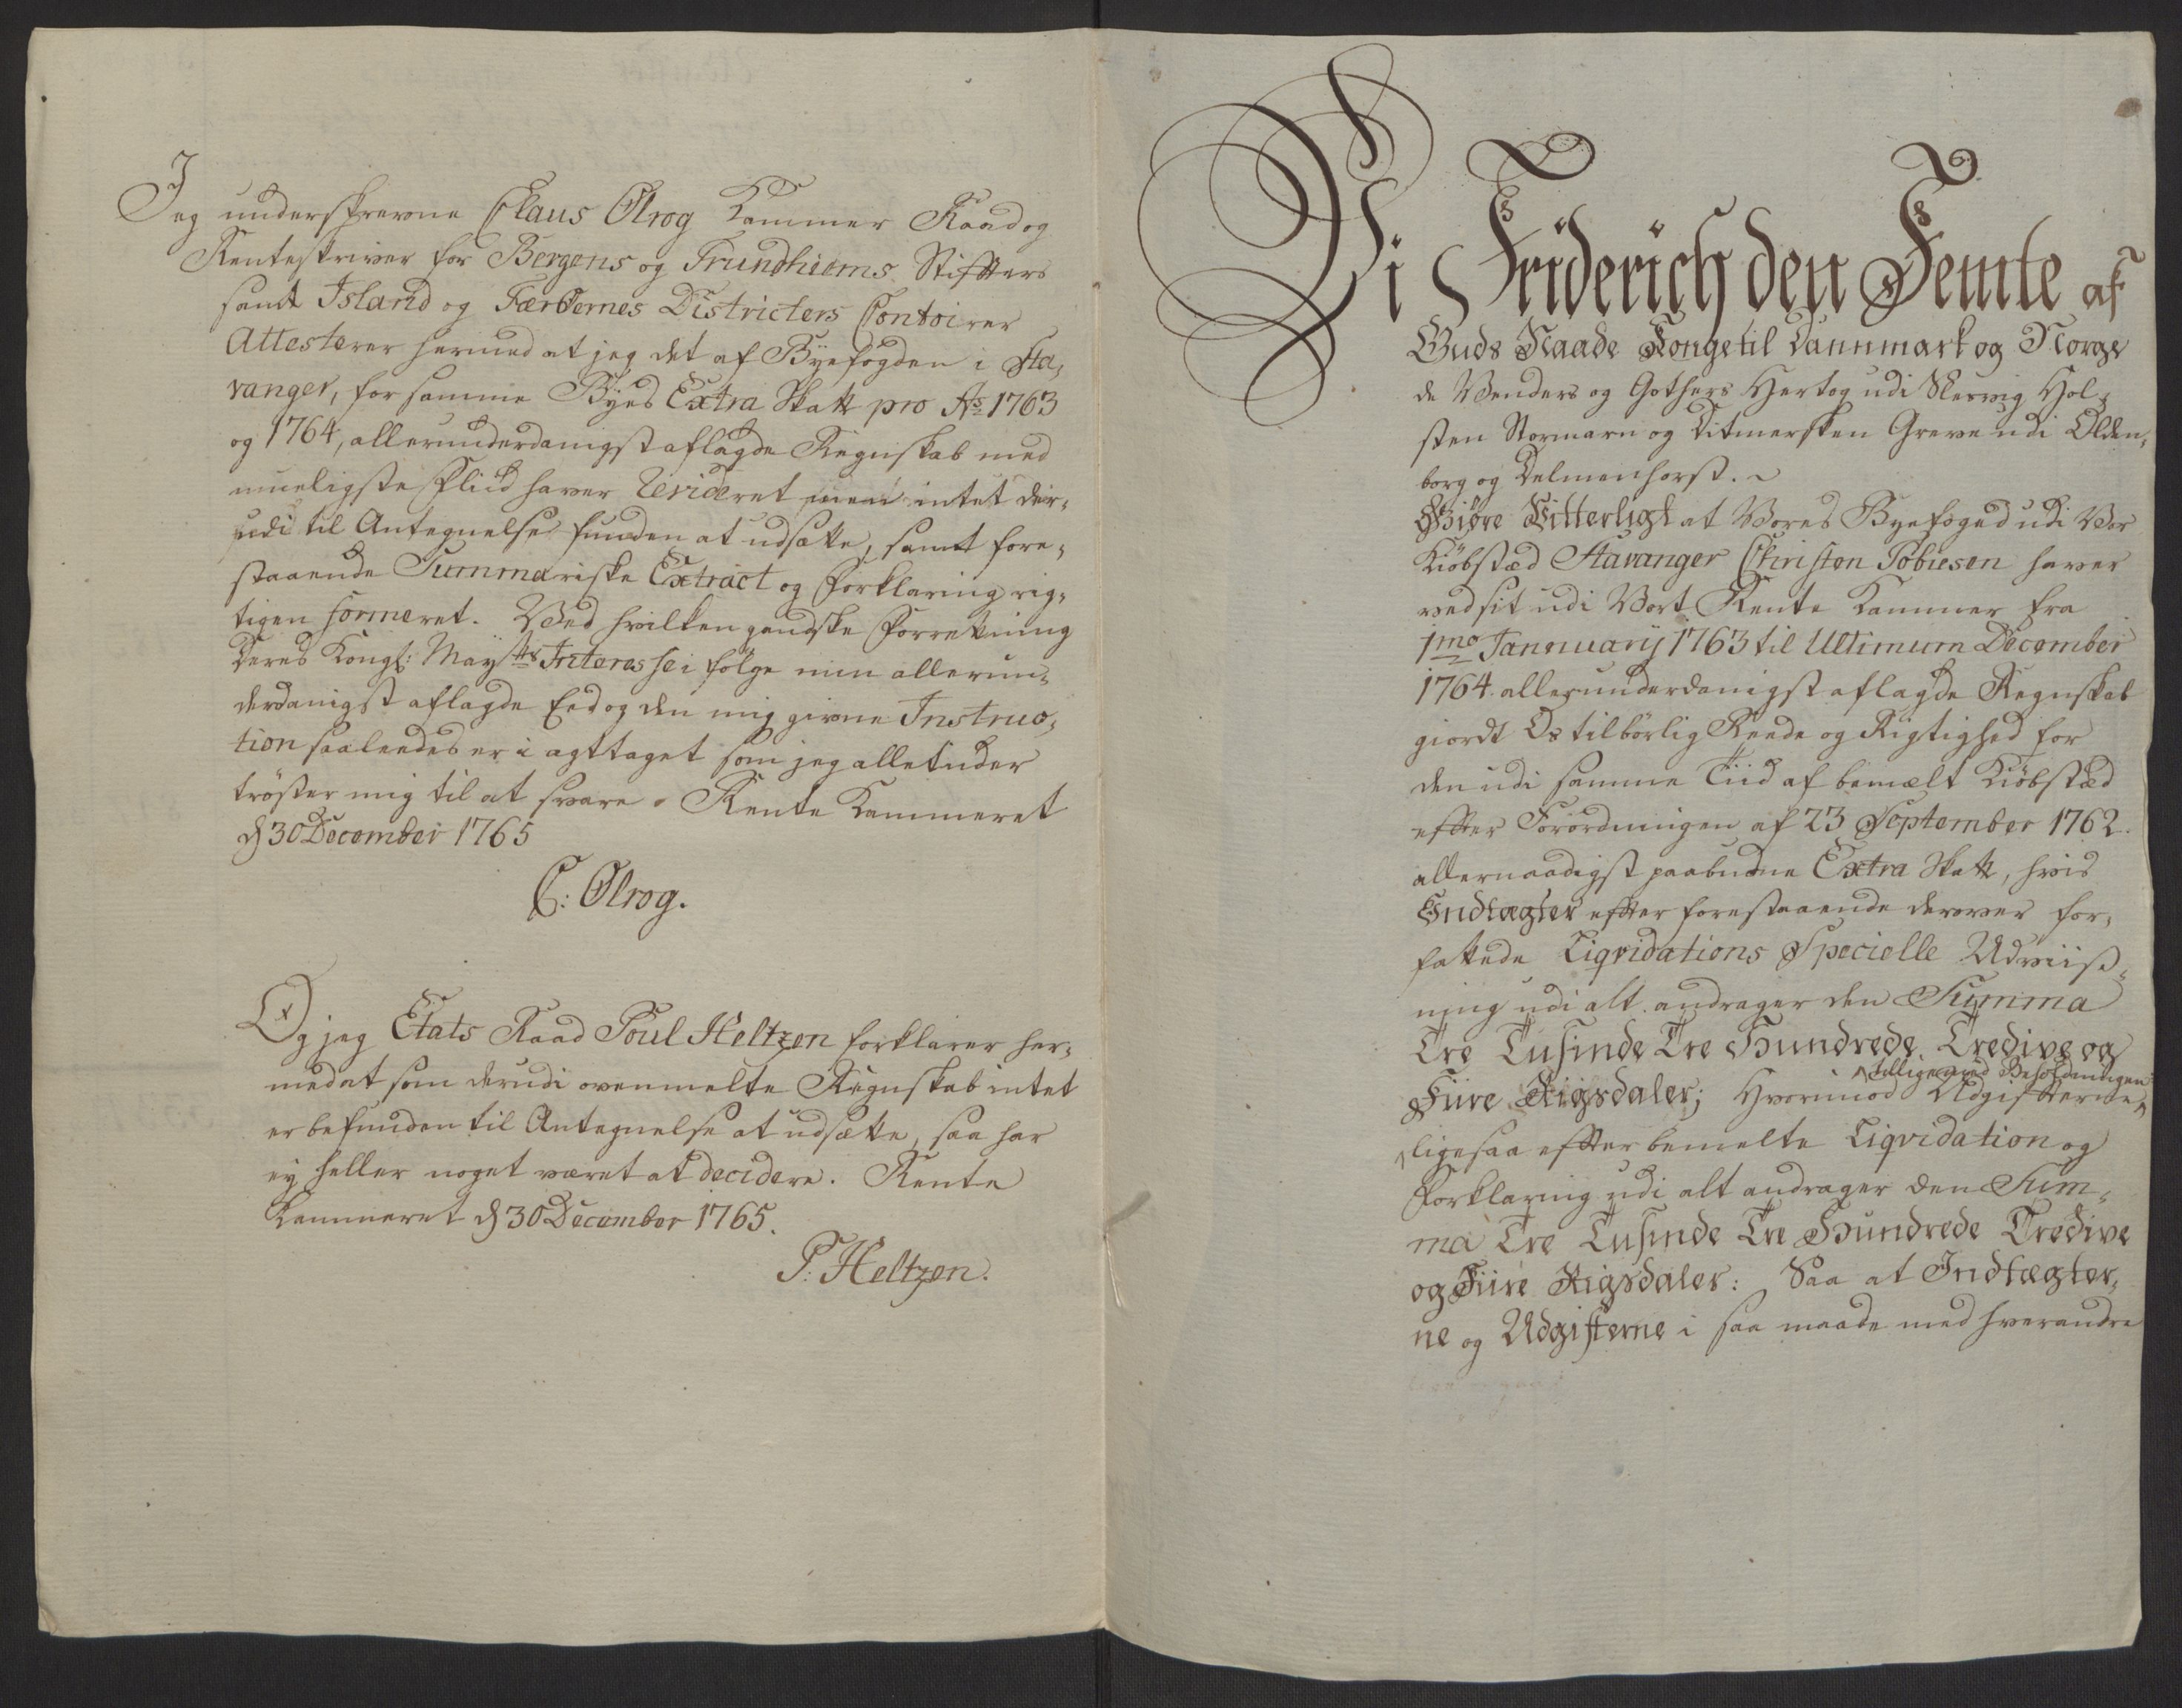 Jeg underskrevne Claus Ølrog Kammer Raad og
Renteskriver for Bergens og Trundhiems Stiffters
samt Island og Færöernes Districters Contoirer
Attesterer hermed at jeg det af Byefogden i Sta,
vanger, for samme Byes Extra Skatt pro Ao 1763
og 1764, allerunderdanigst aflagde Regnskab med
mueligste Fliid haver Revideret men intet der,
udi til Antegnelse funden at udsætte, samt fore,
staaende Summariske Extract og Forklaring rig,
tigen formeret. Ved hvilken gandske Forretning
Deres Kongl: Mayts Interesse i fölge min allerun,
derdanigst aflagde Eed og den mig givne Instruc,
tion saaleedes er i agttaget som jeg alletiider
tröster mig til at svare. Rente Kammeret
d 30 December 1765
C: Ølrog.
Og jeg Etats Raad Poul Heltzen forklarer her,
med at som derudi ovenmelte Regnskab intet
er befunden til Antegnelse at udsætte, saa har
ey heller noget været at decidere. Rente
Kammeret d 30 December 1765.
P: Heltzen.
Vi Friderich den Femte af
Guds Naade Konge til Dannmark og Norge
de Venders og Gothers Hertog udi Slesvig Hol,
sten Stormarn og Ditmersken Greve udi Olden,
borg og Delmenhorst.
Giöre Vitterligt at Vores Byefoged udi Vor
Kiöbstæd Stavanger Christen Tobiesen haver
ved sit udi Vort Rente Kammer fra
1mo Januarij 1763 til Ultimum December
1764. allerunderdanigst aflagde Regnskab
giordt Os tilbörlig Reede og Rigtighed for
den udi samme Tiid af bemælt Kiöbstæd
effter Forordningen af 23 September 1762.
allernaadigst paabudne Extra Skatt, hvis
Indtægter effter forestaaende derover for,
fattede Liqvidations Specielle Udviiß,
ning udi alt andrager den Summa
Tre Tusinde Tre Hundrede Tredive og
Fiire Rigsdaler; Hvorimod Udgifterne
tilligemed Beholdningen
ligesaa effter bemelte Liqvidation og
Forklaring udi alt andrager den Sum,
ma Tre Tusinde Tre Hundrede Tredive
og Fiire Rigsdaler: Saa at Indtægter,
ne og Udgifterne i saa maade med hverandre